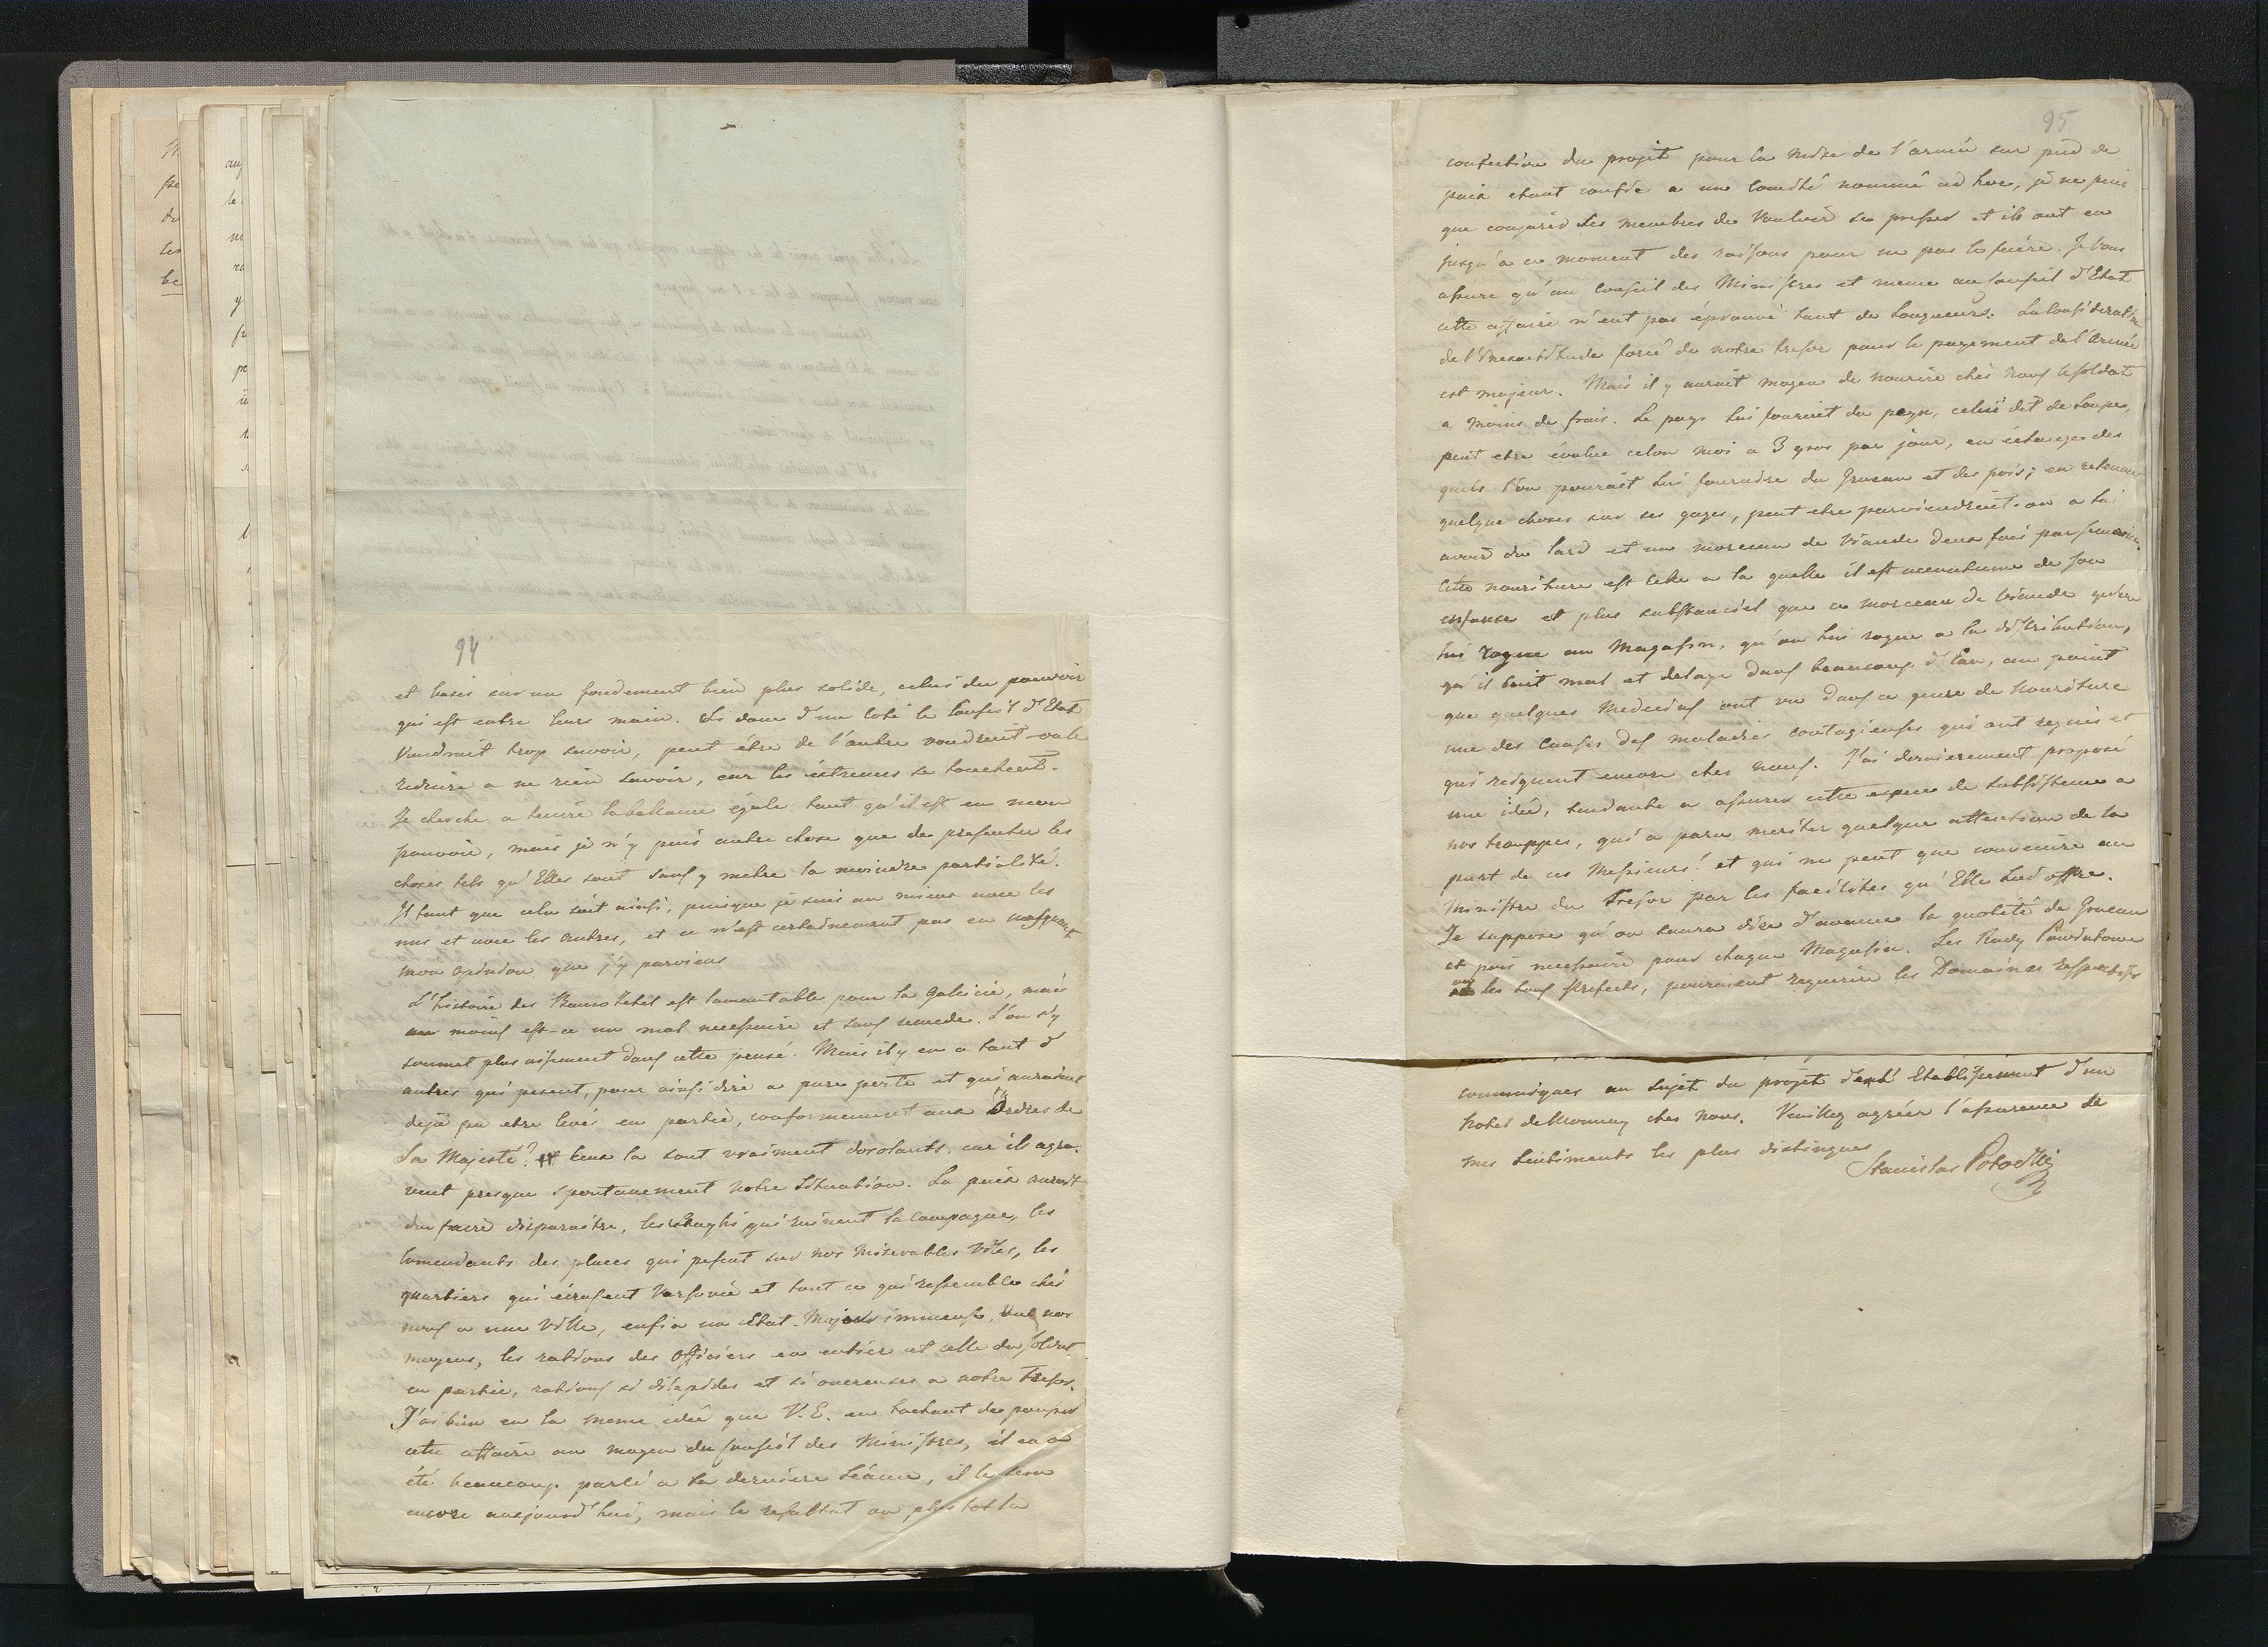 94
et basés sur un fondement bien plus solide, celui du pouvoir
qui est entre leurs main. Si donc d'un coté le Conseil d'Etat
Voudrait trop savoir, peut être de l'autre voudreit-on le
reduire a ne rien savoir, car les extremes se touchent.
Je cherche a tenire la balance égale tant qu'il est en mon
pouvoir, mais je n'y puis autre chose que de presenter les
choses tels qu'Elles sont sans y metre la moindre partialité.
Il faut que cela soit ainsi, puisque je suis au mieux avec les
uns et avec les autres, et ce n'est certainement pas en masquant
mon opinion que j'y parviens
L'histoire des Banco Zetel est lamentable pour la Galicie, mais
au moins est-ce un mal necessaire et sans remede. L'on s'y
soumet plus aisement dans cette pensé. Mais il y en a tant d
autres qui pesent, pour ainsi dire a pure perte et qui auraient
deja pu etre levés en partie, conformement aux Ordres de
Sa Majesté? Ceux la sont vraiment desolants, car ils agra-
vent presque spontanement notre Situation. La paix auroit
du faire disparaitre, les Szaghi qui ruinent la Campagne, les
Comendants des places qui pesent sur nos miserables Viles, les
quartiers qui écrasent Varsovie et tout ce qui ressemble chés
nous a une Ville, enfin un Etat-Major immense, vue nos
moyens, les rations des Officiers en entier et celle du soldat
en partie, rations si dilapidés et si onereuses a notre Tresor.
J'ai bien eu la meme idée que V. E. en tachant de pousser
cette affaire au moyen du Conseil des Ministres, il en a
été beaucoup parlé a la derniere Séance, il le sera
encore aujourd'hui, mais le resultat ou plus tot la
95
confection du projet pour la mise de l'armée sur pied de
paix etant confie a un Comité nommé ad hoc, je ne puis
que conjurér les membres de Vouloir se presser et ils ont eu
jusqu'a ce moment des raisons pour ne pas le faire. Je Vous
assure qu'au Conseil des Ministres et meme au Conseil d'Etat
cette affaire n'eut pas éprouvé tant de longueurs. La Consideration
de l'Inexactitude forcé de notre tresor pour le payement de l'Armée
est majeur. Mais il y auroit moyen de nourire chés Nous le soldat
a moins de frais. Le pays lui fournit du payn, celui dit de Soupes,
peut etre évalue celon moi a 3 gros par jour, en échanges des
quels l'on pouroit lui fourndre du Gruau et des pois; en retenant
quelque choses sur ses gages, peut etre parviendreit-on a lui
avoir du lard et un morceau de Viande deux fois par semaine.
Cette nouriture est Celle a la quelle il est accoutume de son
enfance et plus substanciel que ce morceau de Viande qu'on
lui rogne au Magasin, qu'on lui rogne a la distribution,
qu'il Cuit mal et delaye dans beaucoup d'Eau, au point
que quelques Medecins ont vu dans ce genre de Nouriture
une des Causes des maladies contagieuses qui ont regnés et
qui reignent encore ches nous. J'ai dernierement proposé
une idée, tendante a assurer cette espece de Subsistence a
nos trouppes, qui a paru meriter quelque attention de la
part de ces Messieurs! et qui ne peut que convenire au
Ministre du Tresor par les facilites qu'Elle lui offre.
Je suppose qu'on saura dire d'avance la quotité de Gruau
et pois necessaire pour chaque Magasin. Les Rady Powiatowe
ou les sous Prefects, pouroient requerire les Domaines respectifs
communiques au sujet du projet d'Etablissement d'un
hotel de Monnay ches nous. Veuillez agréer l'assurance de
mes Sentiments les plus distingues
Stanislas Potocki